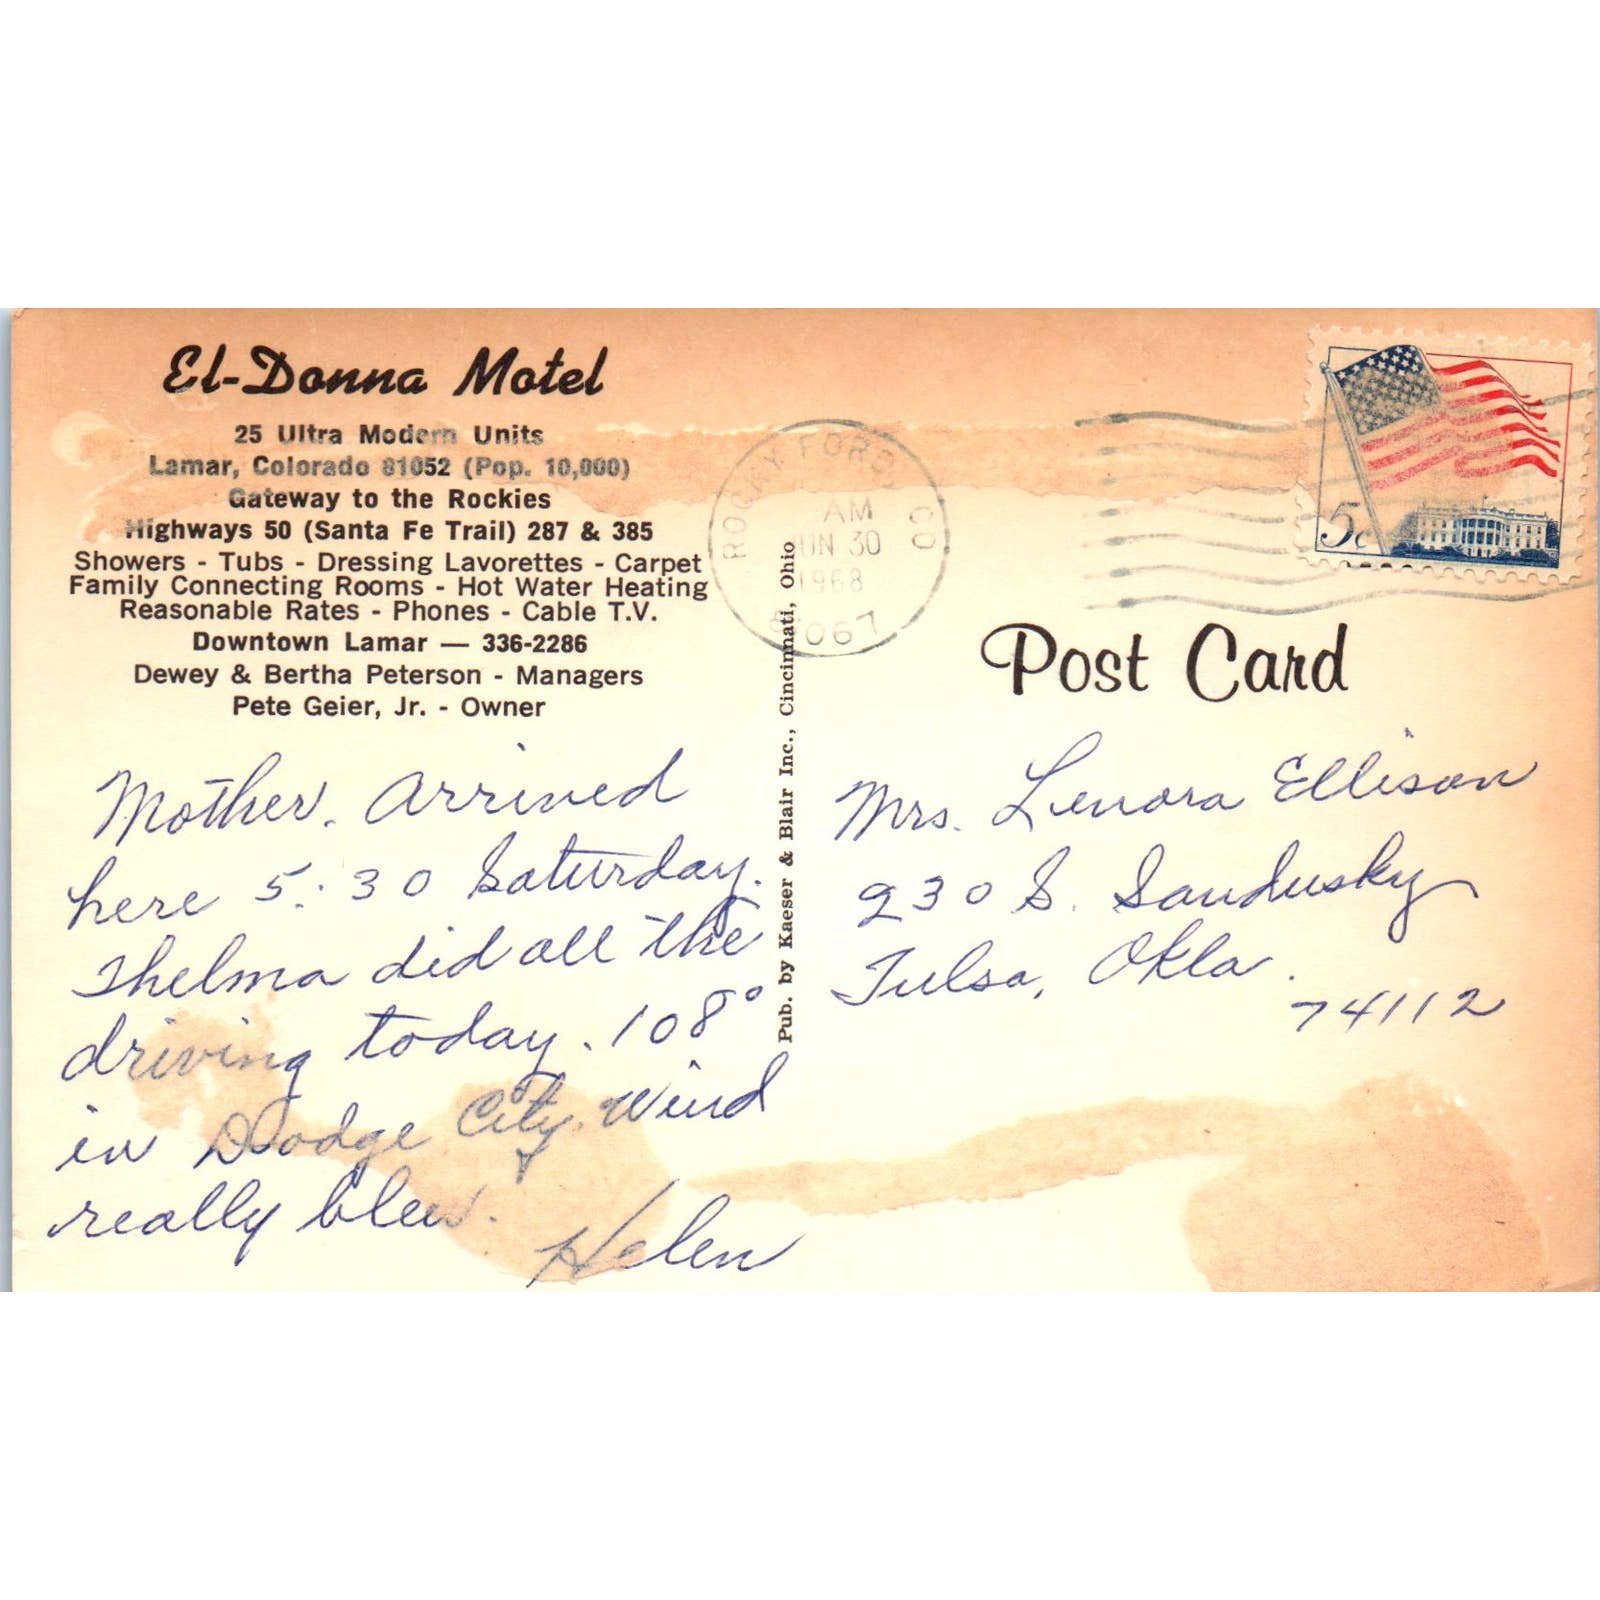 El-Donna Motel
25 Ultra Modern Units
Lamar, Colorado 81052 (Pop. 10,000)
Gateway to the Rockies
Highways 50 (Santa Fe Trail) 287 & 385
Showers - Tubs - Dressing Lavorettes - Carpet
Family Connecting Rooms - Hot Water Heating
Reasonable Rates - Phones - Cable T.V.
Downtown Lamar — 336-2286
Dewey & Bertha Peterson - Managers
Pete Geier, Jr. - Owner
Mother. Arrived
here 5:30 Saturday.
Thelma did all the
driving today. 108°
in Dodge City. Wind
really blew.
Helen
Pub. by Kaeser & Blair Inc., Cincinnati, Ohio
ROCKY FORD CO
AM
JUN 30
1968
81067
5c
Post Card
Mrs. Lenora Ellison
230 S. Sandusky
Tulsa, Okla.
74112